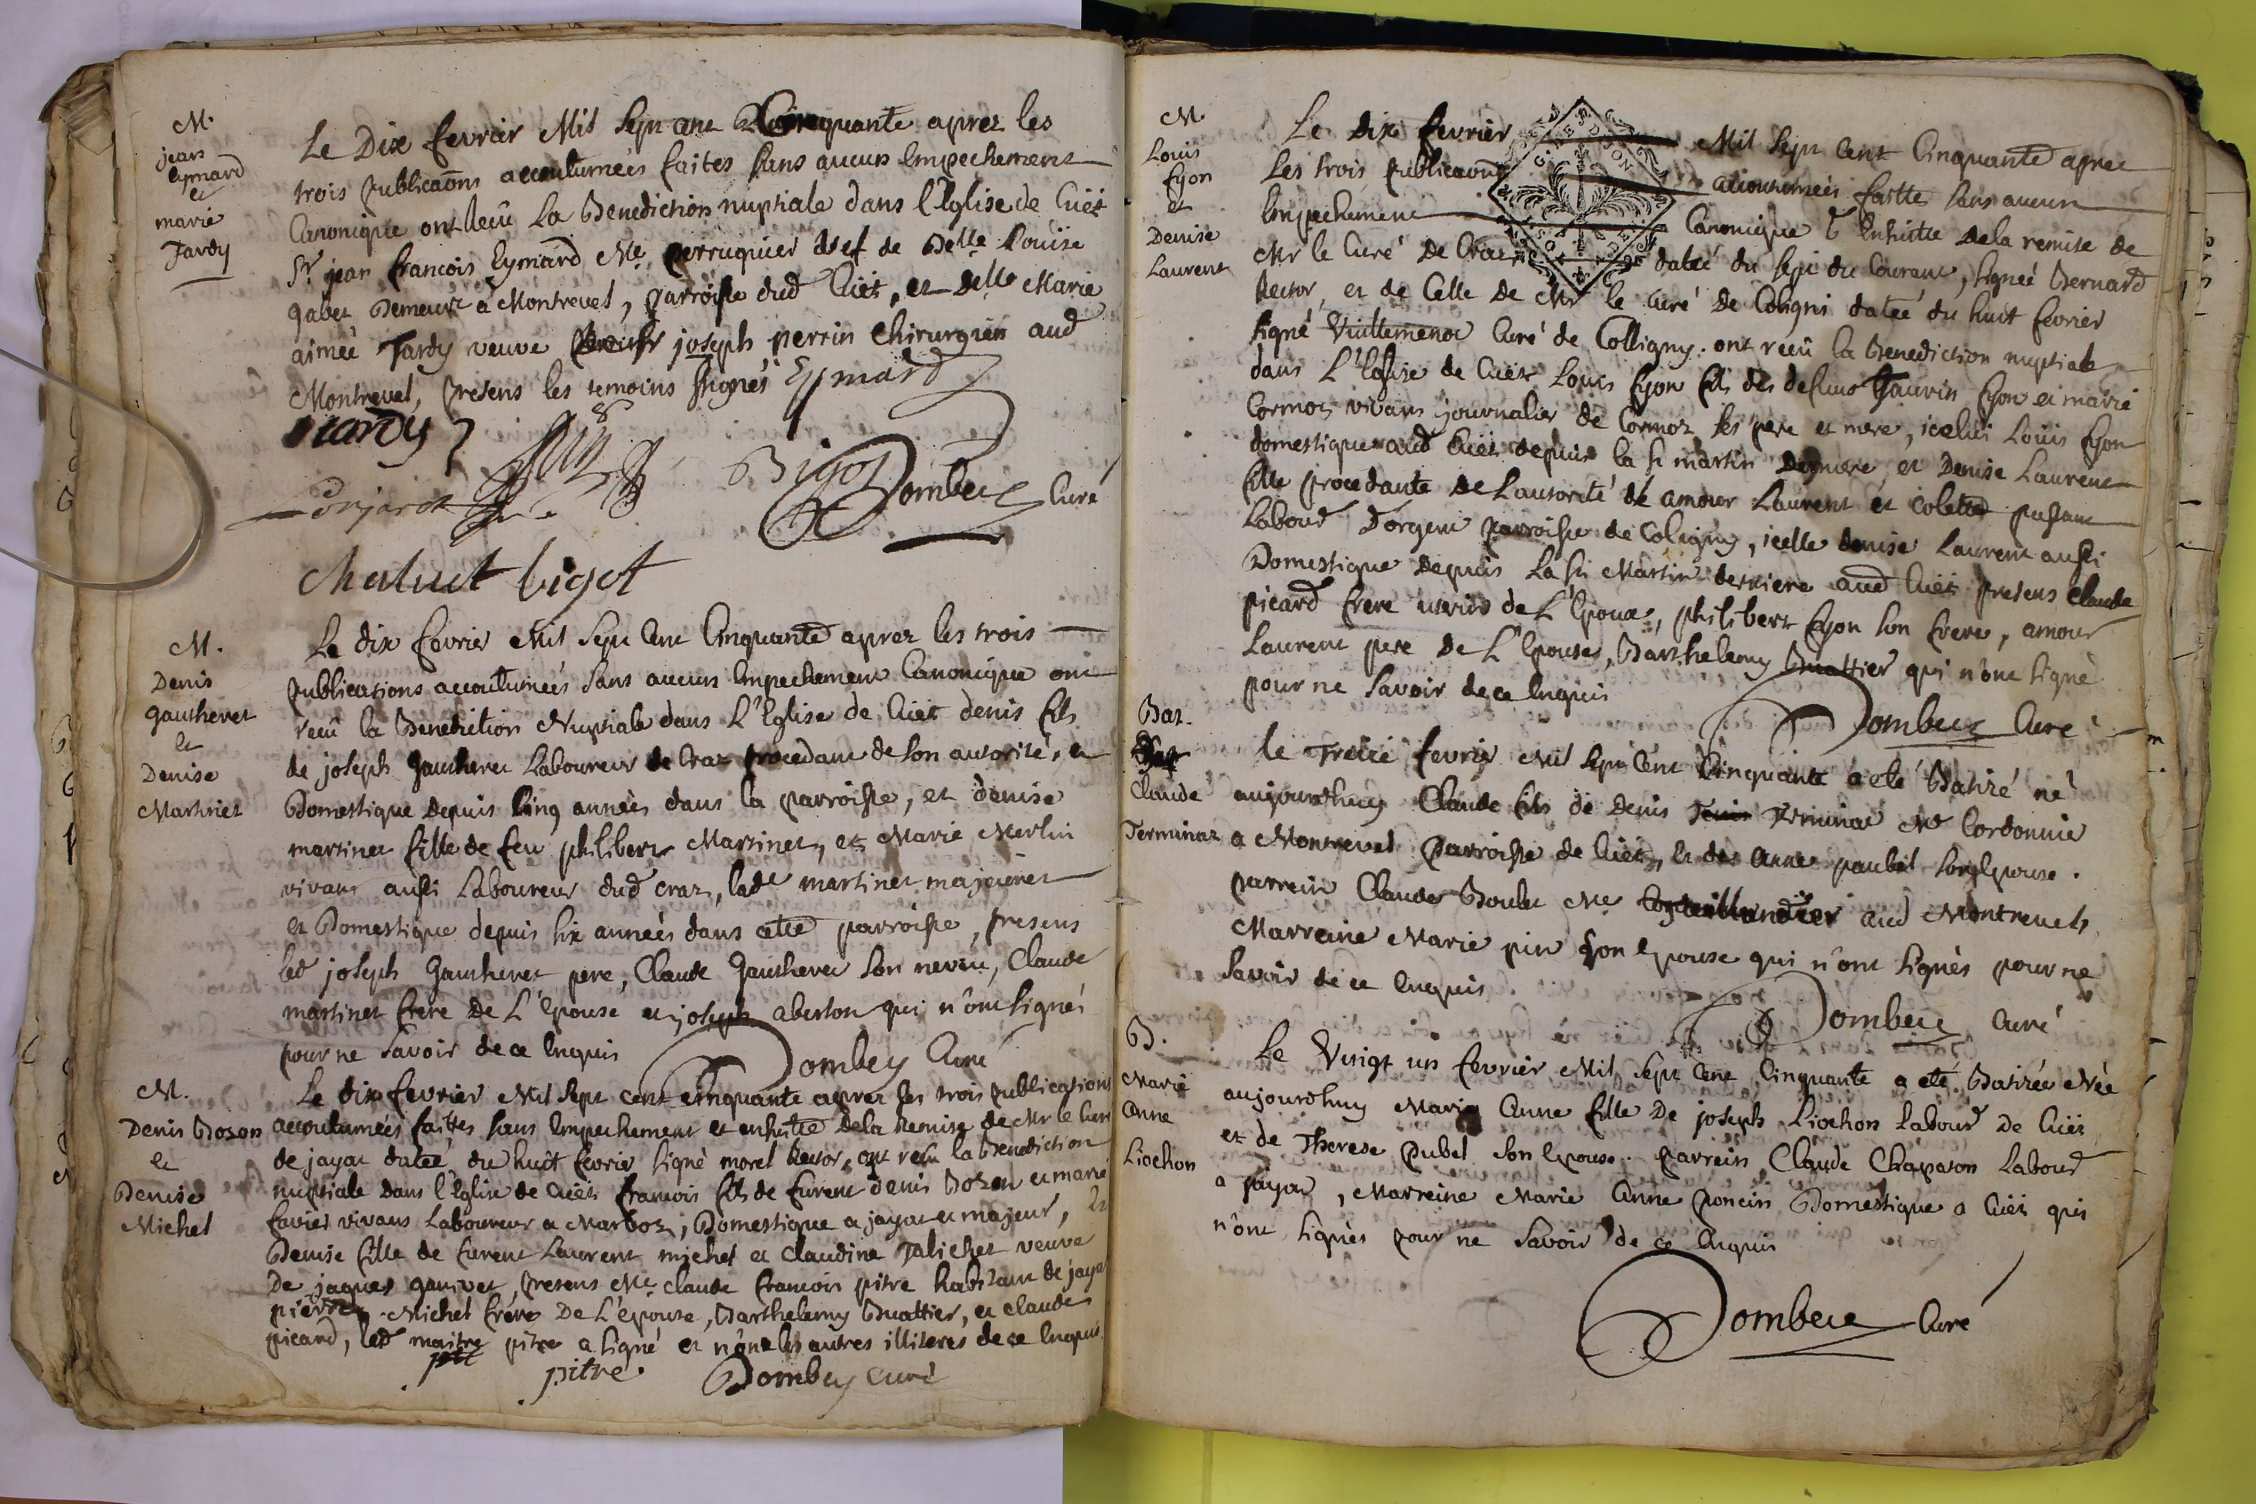 M.
jean
Eymard
et
marie
Tardy
Le Dix fevrier Mil Sept cent Cinquante aprez les
trois publicaons accoutumées faites sans aucun Empechement
Canonique ont Receu La Benediction nuptiale dans l'Eglise de Cuët
Sr jean francois Eymard Me perruquier veuf de Delle Louïse
gabet Demeurt a Montrevel, parroisse dud Cuët, et Delle Marie
aimée Tardy veuve joseph perrin Chirurgien aud
Montrevel, presens les temoins signés Eymard
tardy
Bigot
Dombey Curé
Chalut bigot
M.
Denis
gautheret
et
Denise
Martinet
Le dix fevrier Mil Sept Cent Cinquante aprez les trois
publications accoutumées sans aucun Empechement Canonique ont
reçu la Benediction Nuptiale dans L'Eglise de Cuët denis fils
de joseph gautheret Laboureur de Craz procedant de son autorité, et
Domestique depuis Cinq années dans la parroisse, et denise
martinet fille de feu philibert Martinet, et Marie Merlin
vivans aussi Laboureur dud craz, lade martinet majeure
et Domestique depuis six années dans cette parroisse, presens
led joseph gautheret pere, Claude gautheret son neveu, Claude
martinet frere De L'Epouse et joseph aberton qui n'ont signés
pour ne savoir de ce Enquis
Dombey Curé
M.
Denis Bozon
et
Denise
Michel
Le dix fevrier Mil Sept cent cinquante aprez les trois publications
accoutumées faittes sans Empechement et ensuitte dela Remise de Mr le Curé
de jayat datée du huit fevrier signé morel Rector, ont reçu la Benediction
nuptiale dans l'Eglise de Cuët francois fils de furent denis Bozon et marie
favier vivans Laboureur a Marboz, Domestique a jayat et majeur, Et
Denise fille de furent Laurent michel et Claudine Talichet veuve
De jaques ganivet, presens Me claude francois pitre habitant de jayat
pierre Michel frere De L'epouse, Barthelemy Buattier, et claude
picard, led maitre pitre a signé et non les autres illiteres de ce Enquis
pitre
Dombey curé
M
Louis
fyon
et
Denise
Laurent
Le dix fevrier Mil Sept Cent Cinquante aprez
Les trois publicaons accoutumées faitte sans aucun
Empechement Canonique & Ensuitte dela remise de
Mr le Curé De Craz datée du sept du Courant, signée Bernard
Rector, et de Celle De Mr le Curé De Coligni datée du huit fevrier
signé Vuillemenot Curé de Colligny. ont reçu la Benediction nuptiale
dans L'Eglise de Cuët Louis fyon fils des defunts Taurin fyon et marie
Cormoz vivans journalier de Cormoz ses pere et mere, icelui Louis fyon
domestique aud Cuët depuis la st martin Derniere et Denise Laurent
fille procedante de Lautorité de amour Laurent et colette passant
Laboud D'orgent parroisse de Coligny, icelle denise Laurent aussi
Domestique Depuis La st Martin derniere aud Cuët presens claude
picard frere uterin de L'Epoux, philibert fyon son frere, amour
Laurent pere De L'Epouse, Barthelemy Buattier qui n'ont signé
pour ne savoir de ce Enquis
Dombey Curé
Bat.
Claude
Terminat
le treize fevrier Mil Sept Cent Cinquante a eté Batizé né
aujourdhuy Claude fils de Denis Terminat Me Cordonnie
a Montrevel parroisse de Cuët, et de Anne paubel son Epouse.
parrein Claude Boulet Me aud Montrevel,
Marreine Marie pin son Epouse qui n'ont signés pour ne
savoir de ce Enquis
Dombey Curé
B.
Marie
Anne
Liochon
Le Vingt un fevrier Mil Sept Cent Cinquante a eté Batizée Née
aujourdhuy Marie Anne fille De joseph Liochon Laboud De Cuët
et de Therese pubel son Epouse. parrein Claude Chaparon Laboud
a jayat, Marreine Marie Anne poncin Domestique a Cuët qui
n'ont signés pour ne savoir de ce Enquis
Dombey Curé